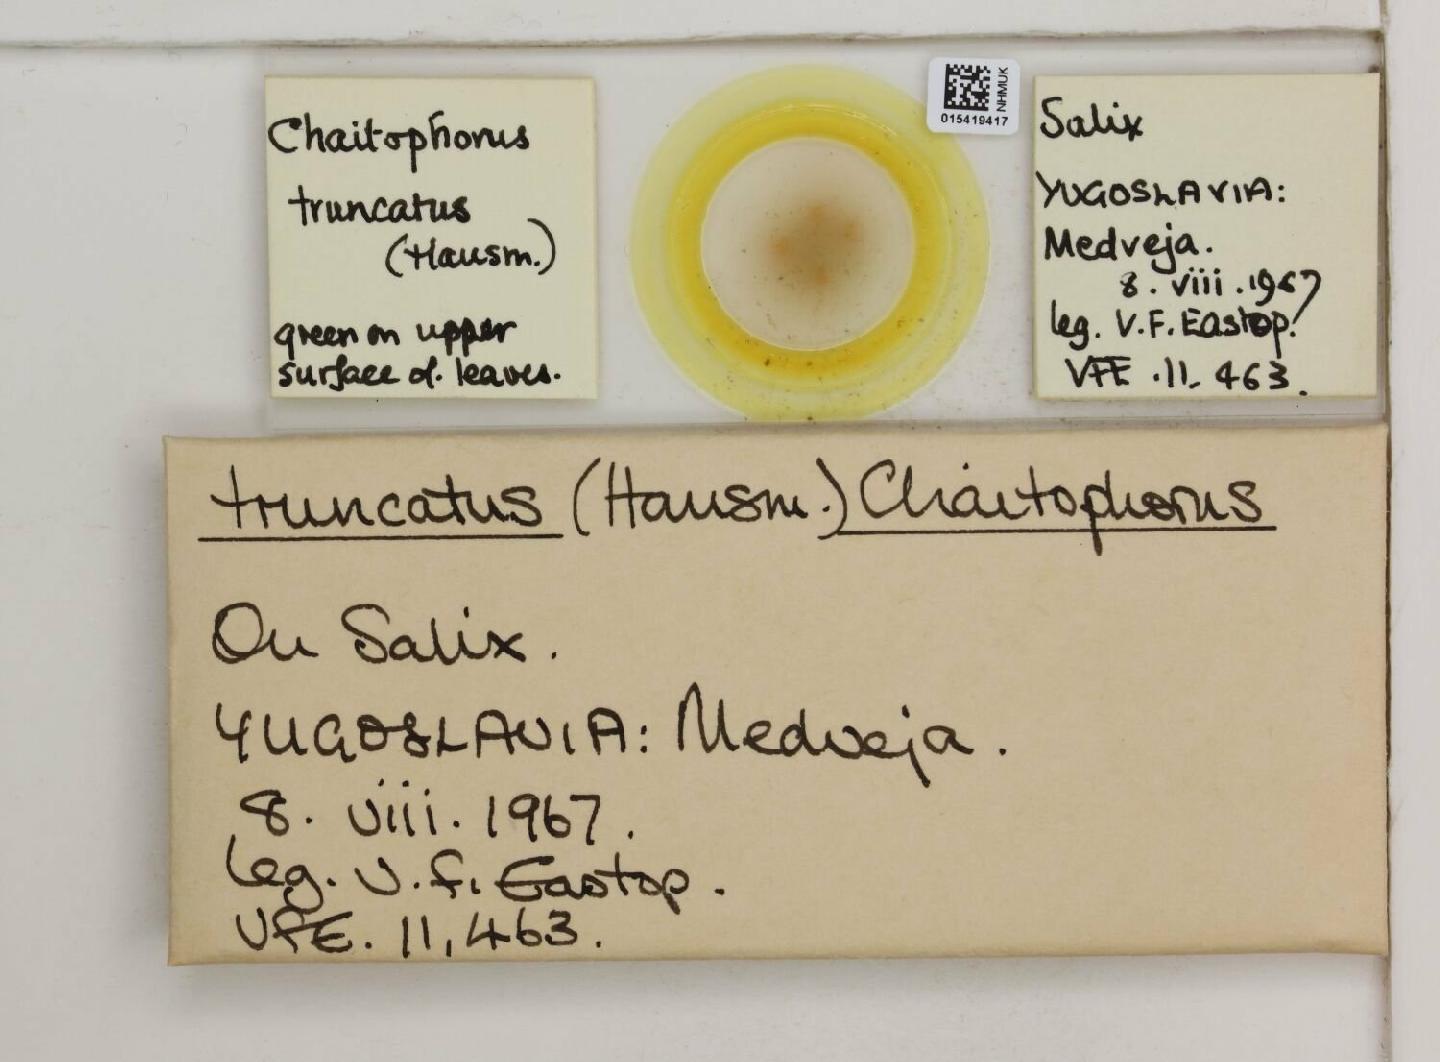 Chaitophorus
truncatus
(Hausm.)
green on upper
surface of. leaves.
NHMUK
015419417
Salix
YUGOSLAVIA:
Medveja.
8. viii. 1967
leg. V.F. Eastop.
VFE. 11. 463.
truncatus (Hausm.) Chaitophorus
On Salix.
YUGOSLAVIA: Medveja.
8. viii. 1967.
leg. V. F. Eastop.
VFE. 11,463.